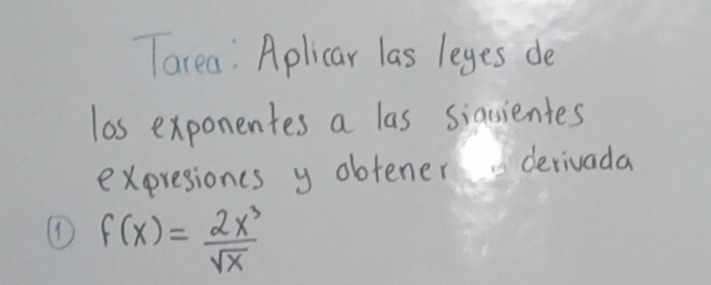 Tarea: Aplicar las leyes de
los exponentes a las siguientes
expresiones y obtener derivada
① f(x) = 2x³/√x